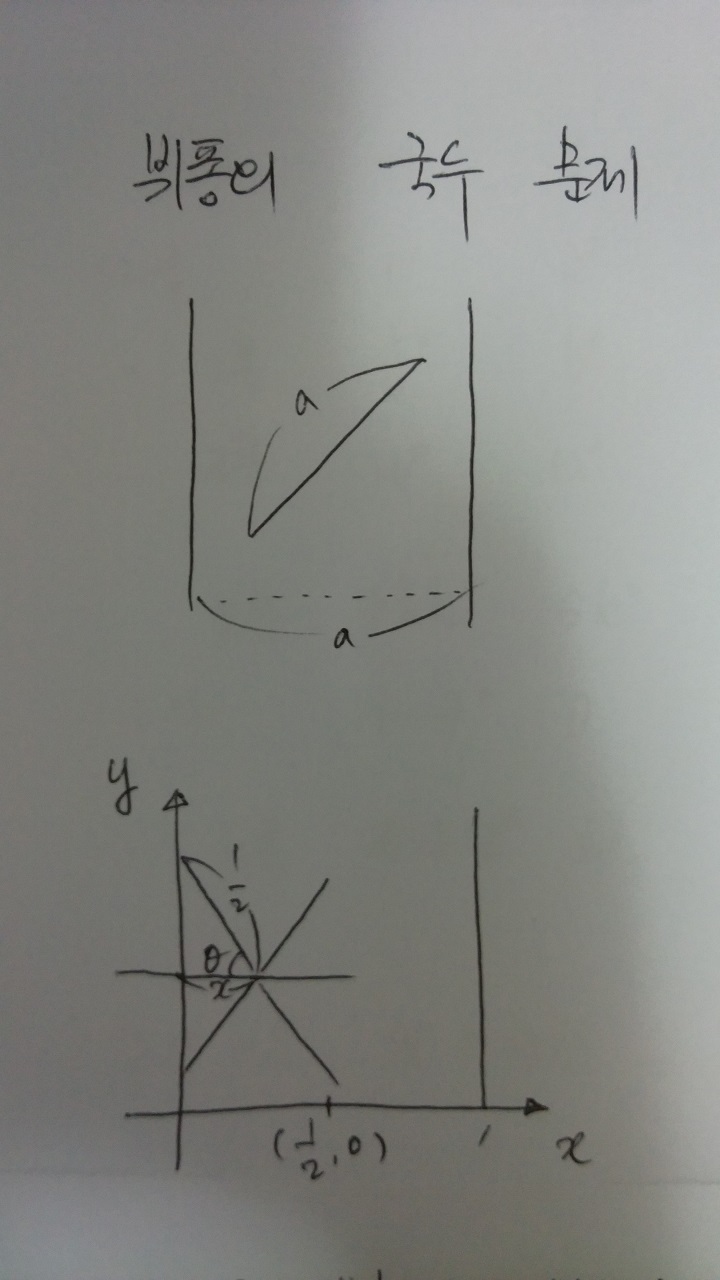 뷔퐁의 국수 문제
a
a
y
1/2
θ
x
(1/2, 0)
1
x